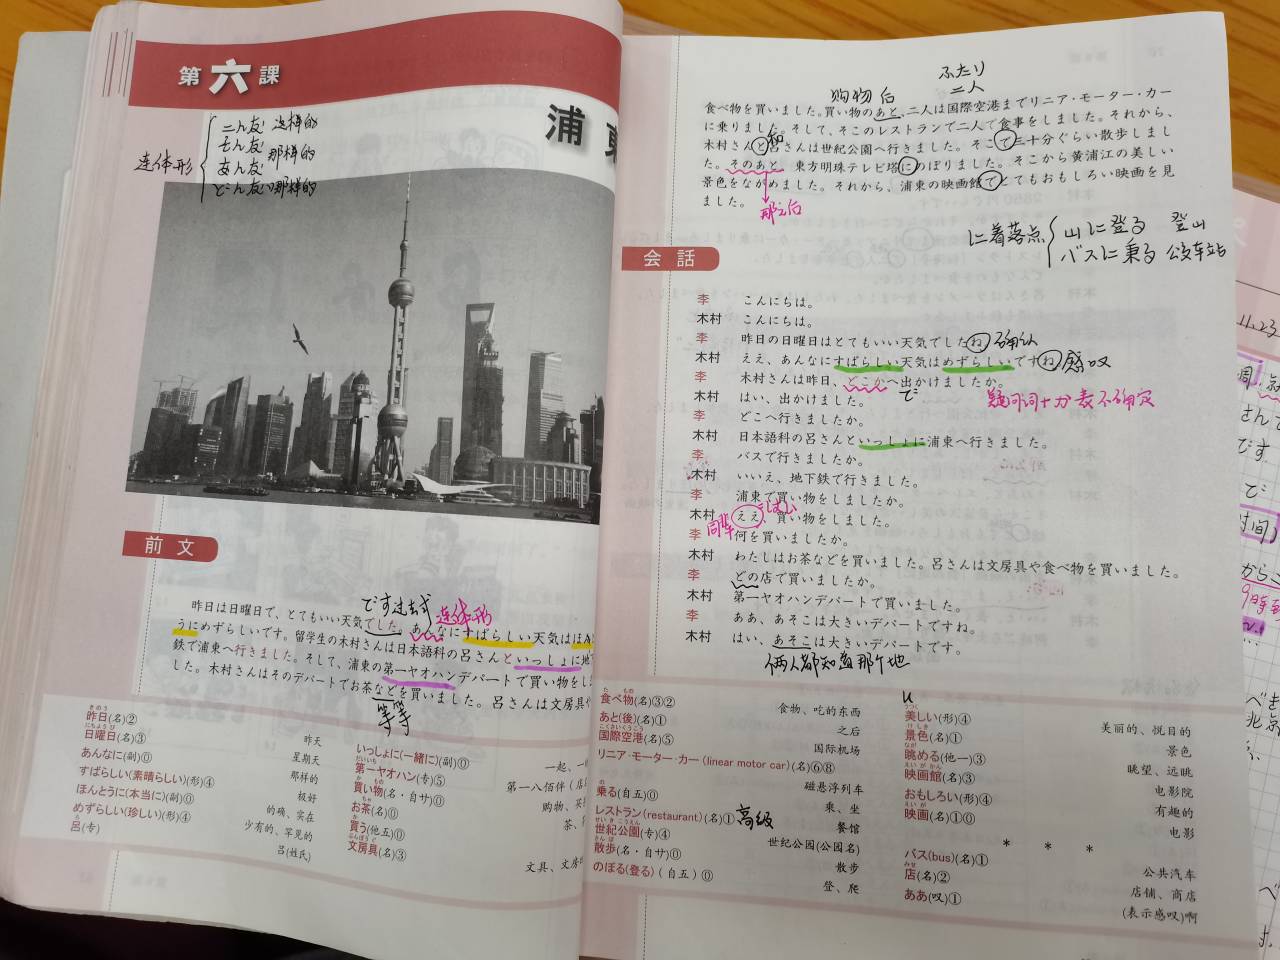 第六課
浦東
こんな 这样的
そんな
あんな 那样的
どんな 哪样的
连体形
前文
です过去式
连体形
昨日は日曜日で、とてもいい天気でした。あんなにすばらしい天気はほん
うにめずらしいです。留学生の木村さんは日本語科の呂さんといっしょに地下
鉄で浦東へ行きました。そして、浦東の第一ヤオハンデパートで買い物をしまし
た。木村さんはそのデパートでお茶などを買いました。呂さんは文房具や
等等
きのう
昨日(名)② 昨天
にちようび
日曜日(名)③ 星期天
あんなに(副)⓪ 那样的
すばらしい(素晴らしい)(形)④ 极好
ほんとうに(本当に)(副)⓪ 的确、实在
めずらしい(珍しい)(形)④ 少有的、罕见的
ろ
呂(专) 吕(姓氏)
いっしょに(一緒に)(副)⓪ 一起、一
だいいち
第一ヤオハン(专)⑤ 第一八佰伴
か もの
買い物(名・自サ)⓪ 购物、买
ちゃ
お茶(名)⓪ 茶、
か
買う(他五)⓪
ぶんぼうぐ
文房具(名)③ 文具、文房
购物后
ふたり
二人
食べ物を買いました。買い物のあと、二人は国際空港までリニア・モーター・カー
に乗りました。そして、そこのレストランで二人で食事をしました。それから、
和
木村さんと呂さんは世紀公園へ行きました。そこで三十分ぐらい散歩しまし
た。そのあと、東方明珠テレビ塔にのぼりました。そこから黄浦江の美しい
景色をながめました。それから、浦東の映画館でとてもおもしろい映画を見
ました。
那之后
に着落点
山に登る 登山
バスに乗る 公交车站
会話
李 こんにちは。
木村 こんにちは。
李 昨日の日曜日はとてもいい天気でしたね。 确认
木村 ええ、あんなにすばらしい天気はめずらしいですね。 感叹
李 木村さんは昨日、どこかへ出かけましたか。
で
疑问词+か 表不确定
木村 はい、出かけました。
李 どこへ行きましたか。
木村 日本語科の呂さんといっしょに浦東へ行きました。
李 バスで行きましたか。
木村 いいえ、地下鉄で行きました。
李 浦東で買い物をしましたか。
木村 ええ、買い物をしました。
同辈
李 何を買いましたか。
木村 わたしはお茶などを買いました。呂さんは文房具や食べ物を買いました。
李 どの店で買いましたか。
木村 第一ヤオハンデパートで買いました。
李 ああ、あそこは大きいデパートですね。
木村 はい、あそこは大きいデパートです。
俩人都知道那个地
た もの
食べ物(名)③② 食物、吃的东西
あと(後)(名)① 之后
こくさいくうこう
国際空港(名)⑤ 国际机场
リニア・モーター・カー(linear motor car)(名)⑥⑧ 磁悬浮列车
の
乗る(自五)⓪ 乘、坐
レストラン(restaurant)(名)① 餐馆
高级
せいきこうえん
世紀公園(专)④ 世纪公园(公园名)
さんぽ
散歩(名・自サ)⓪ 散步
のぼる(登る)(自五)⓪ 登、爬
うつく
美しい(形)④ 美丽的、悦目的
けしき
景色(名)① 景色
なが
眺める(他一)③ 眺望、远眺
えいがかん
映画館(名)③ 电影院
おもしろい(形)④ 有趣的
えいが
映画(名)①⓪ 电影
* * *
バス(bus)(名)① 公共汽车
みせ
店(名)② 店铺、商店
ああ(叹)① (表示感叹)啊
11.23
さんで
です
で
时间)
から
9時